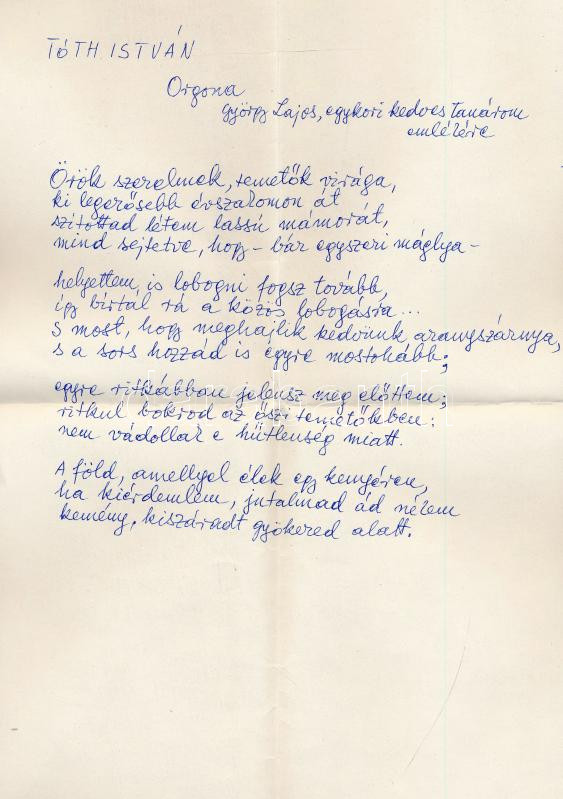 TÓTH ISTVÁN
Orgona
György Lajos, egykori kedves tanárom
emlékére
Örök szerelmek, temetők virága,
ki legerősebb évszakomon át
szítottad létem lassú mámorát,
mind sejtetve, hogy – bár egyszeri máglya –
helyettem is lobogni fogsz tovább,
így bírtál rá a közös lobogásra...
S most, hogy meghajlik kedvünk aranyszárnya,
s a sors hozzád is egyre mostohább;
egyre ritkábban jelensz meg előttem;
ritkul bokrod az őszi temetőkben:
nem vádollak e hűtlenség miatt.
A föld, amellyel élek egy kenyéren,
ha kiérdemlem, jutalmad ád nékem
kemény, kiszáradt gyökered alatt.